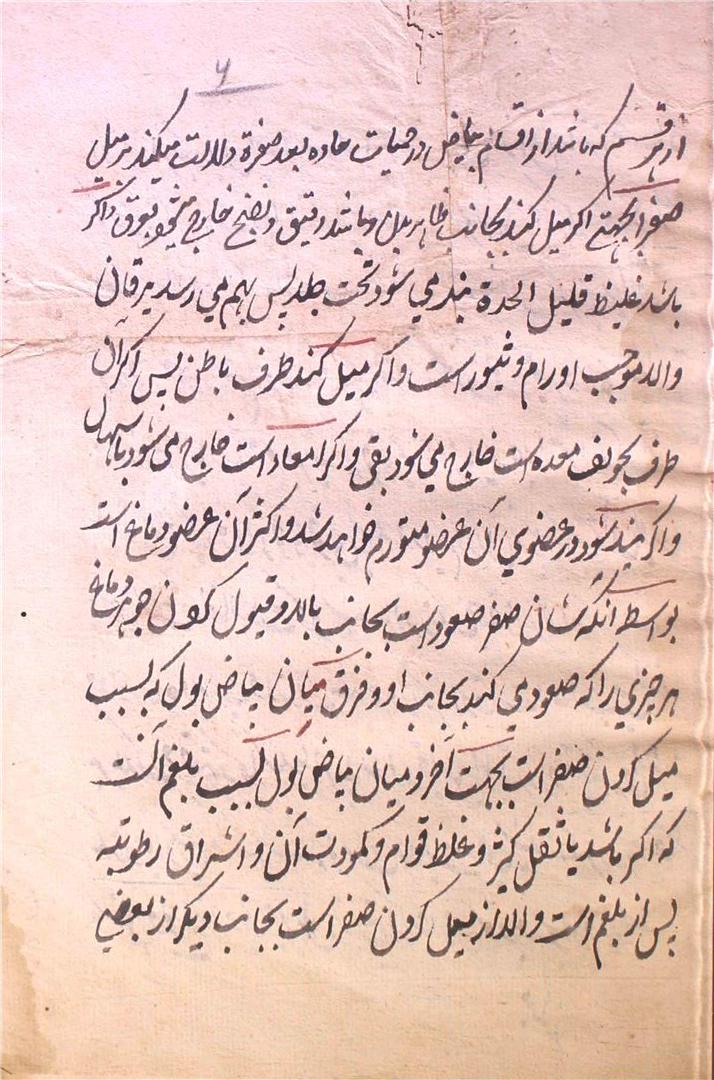 ۶
از هر قسم که باشد از اقسام بیاض در حمیات حاده بعد صفرة دلالت میکند بر میل
صفرا بجهتے اکر میل کند بجانب ظاهر بدن و باشد رقیق و نضیج خارج میشود بعرق و اکر
باشد غلیظ قلیل الحدة بند می شود تحت جلد پس بهم می رسد یرقان
والا موجب اورام و بثور است و اکر میل کند طرف باطن پس اکر آن
طرف تجویف معده است خارج می شود بقی و اکر امعاء است خارج می شود باسهال
و اکر بند شود در عضوی آن عضو متورم خواهد شد و اکثر آن عضو دماغ است
بواسطه آنکه شان صفرا صعود است بجانب بالا و قبول کردن جوهر دماغ
هر چیزی را که صعود می کند بجانب او و فرق میان بیاض بول که بسبب
میل کردن صفرا است بجهت آخر و میان بیاض بول بسبب بلغم آنست
که اکر باشد با ثقل کثیر و غلظ قوام و کمودت آن و اشراق رطوبته
پس از بلغم است والا از میل کردن صفرا است بجانب دیکر از بعضے